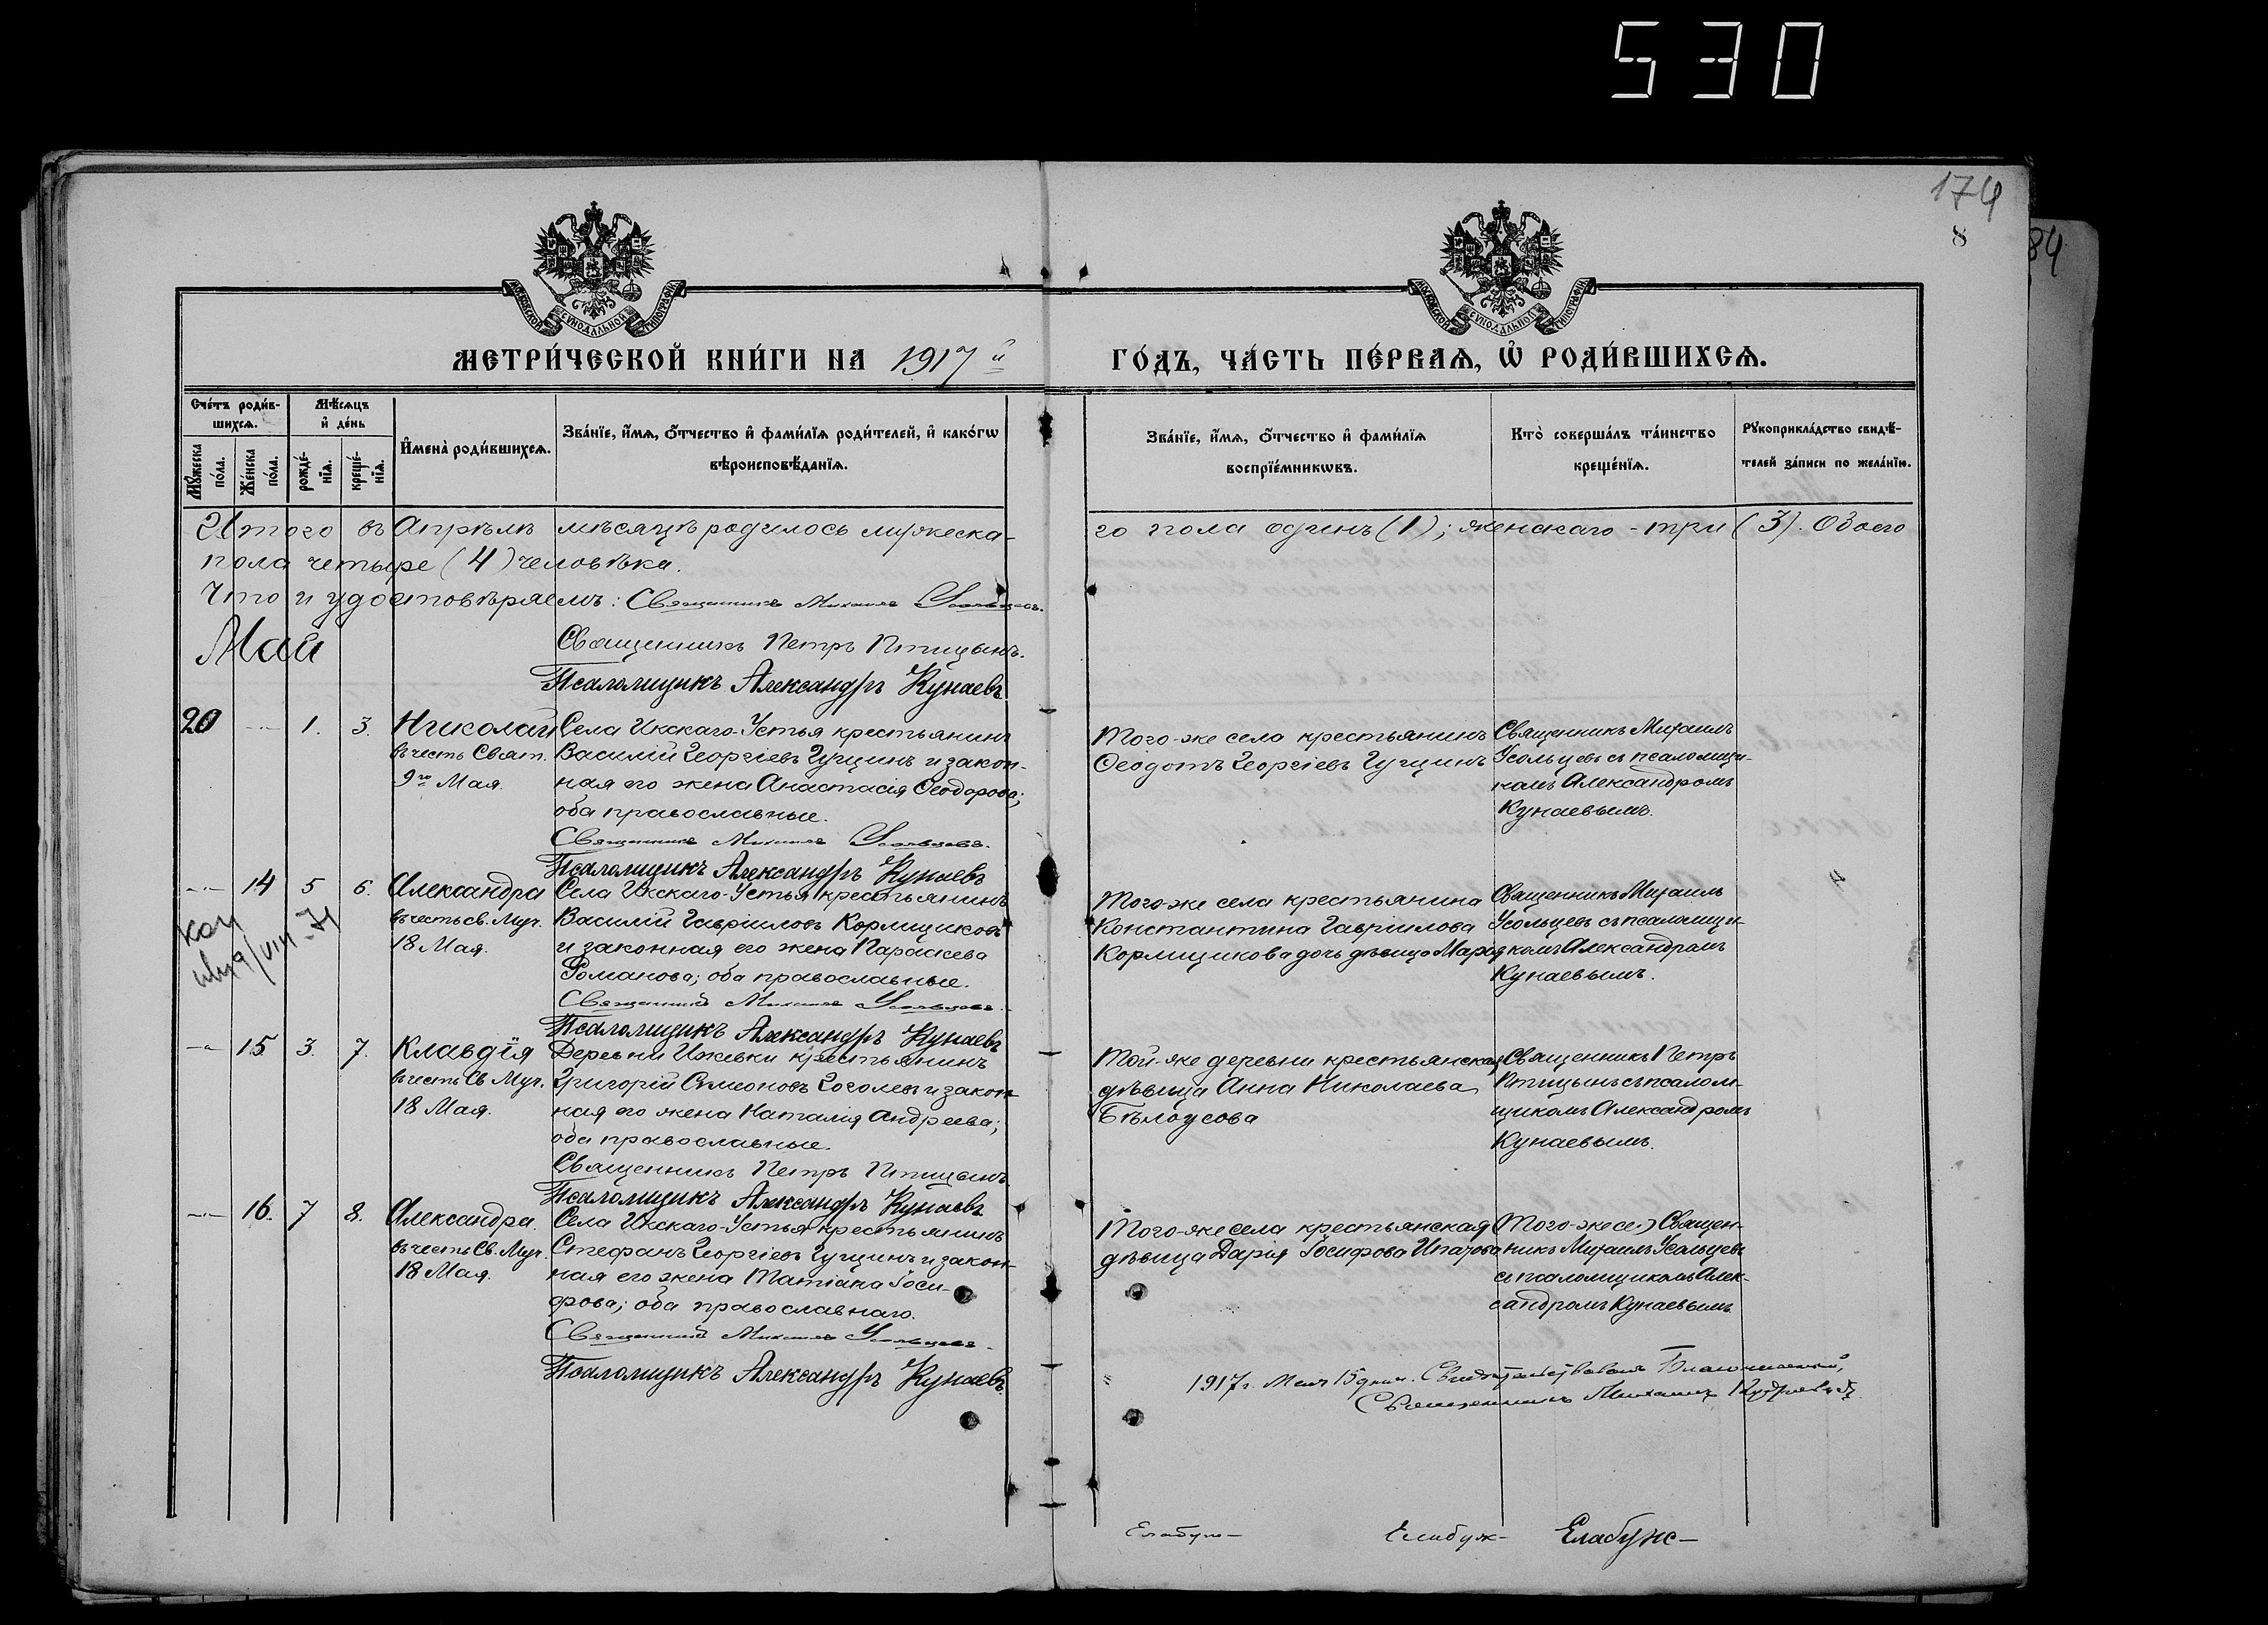 530
174
8
84
МОСКОВСКОЙ СѴНОДАЛЬНОЙ ТИПОГРАФІИ
МОСКОВСКОЙ СѴНОДАЛЬНОЙ ТИПОГРАФІИ
МЕТРИ́ЧЕСКОЙ КНИ́ГИ НА 1917й
ГО́ДЪ, ЧА́СТЬ ПЕ́РВАѦ, Ѡ҆ РОДИ́ВШИХСѦ.
Сче́тъ роди́вшихсѧ.
Мꙋ́жеска по́ла.
Же́нска по́ла.
Мѣ́сѧцъ и҆ де́нь
рожде́нїѧ.
креще́нїѧ.
И҆мена̀ роди́вшихсѧ.
Зва́нїе, и҆́мѧ, ѻ҆́тчество и҆ фами́лїѧ роди́телей, и҆ како́гѡ
вѣроисповѣ́данїѧ.
Зва́нїе, и҆́мѧ, ѻ҆́тчество и҆ фами́лїѧ
воспрїе́мникѡвъ.
Кто̀ соверша́лъ та́инство
креще́нїѧ.
Рꙋкоприкла́дство свидѣ́-
телей за́писи по жела́нїю.
Итого въ Апрѣлѣ мѣсяцѣ родилось мужеска-
го пола одинъ (1); женскаго - три (3). Обоего
пола четыре (4) человѣка.
Что и удостовѣряемъ: Священникъ Михаилъ Усольцевъ.
Май
Священникъ Петръ Птицынъ.
Псаломщикъ Александръ Кунаевъ
20 — 1. 3. Николай
въ честь Свят.
9го Мая.
Села Икскаго-Устья крестьянинъ
Василій Георгіевъ Чущинъ и закон-
ная его жена Анастасія Ѳеодорова;
оба православные.
Священникъ Михаилъ Усольцевъ.
Псаломщикъ Александръ Кунаевъ
Того-же села крестьянинъ
Ѳеодотъ Георгіевъ Чущинъ
Священникъ Михаилъ
Усольцевъ съ псаломщи-
комъ Александромъ
Кунаевымъ.
— 14 5 6. Александра
въ честь св. Муч.
18 Мая.
Села Икскаго-Устья крестьянинъ
Василій Гавріиловъ Кормщиковъ
и законная его жена Параскева
Романова; оба православные.
Священникъ Михаилъ Усольцевъ.
Псаломщикъ Александръ Кунаевъ
Того-же села крестьянина
Константина Гавріилова
Кормщикова дочь дѣвица Марія
Священникъ Михаилъ
Усольцевъ съ псаломщи-
комъ Александромъ
Кунаевымъ.
— 15 3. 7. Клавдія
въ честь Св Муч.
18 Мая.
Деревни Ижевки крестьянинъ
Григорій Симеоновъ Гоголевъ и закон-
ная его жена Наталія Андреева;
оба православные.
Священникъ Петръ Птицынъ.
Псаломщикъ Александръ Кунаевъ
Той-же деревни крестьянская
дѣвица Анна Николаева
Бѣлоусова
Священникъ Петръ
Птицынъ съ псалом-
щикомъ Александромъ
Кунаевымъ.
— 16. 7 8. Александра.
въ честь Св. Муч.
18 Мая.
Села Икскаго-Устья крестьянинъ
Стефанъ Георгіевъ Чущинъ и закон-
ная его жена Татіана Іоси-
фова; оба православнаго.
Священникъ Михаилъ Усольцевъ.
Псаломщикъ Александръ Кунаевъ.
Того-же села крестьянская
дѣвица Дарія Іосифова Ипатова
(Того-же се) Священ-
никъ Михаилъ Усольцевъ
съ псаломщикомъ Алек-
сандромъ Кунаевымъ.
1917г. Мая 15 дня. Свидѣтельствовалъ Благочинный,
Священникъ Михаилъ
Елабуж- Елабуж- Елабуж-